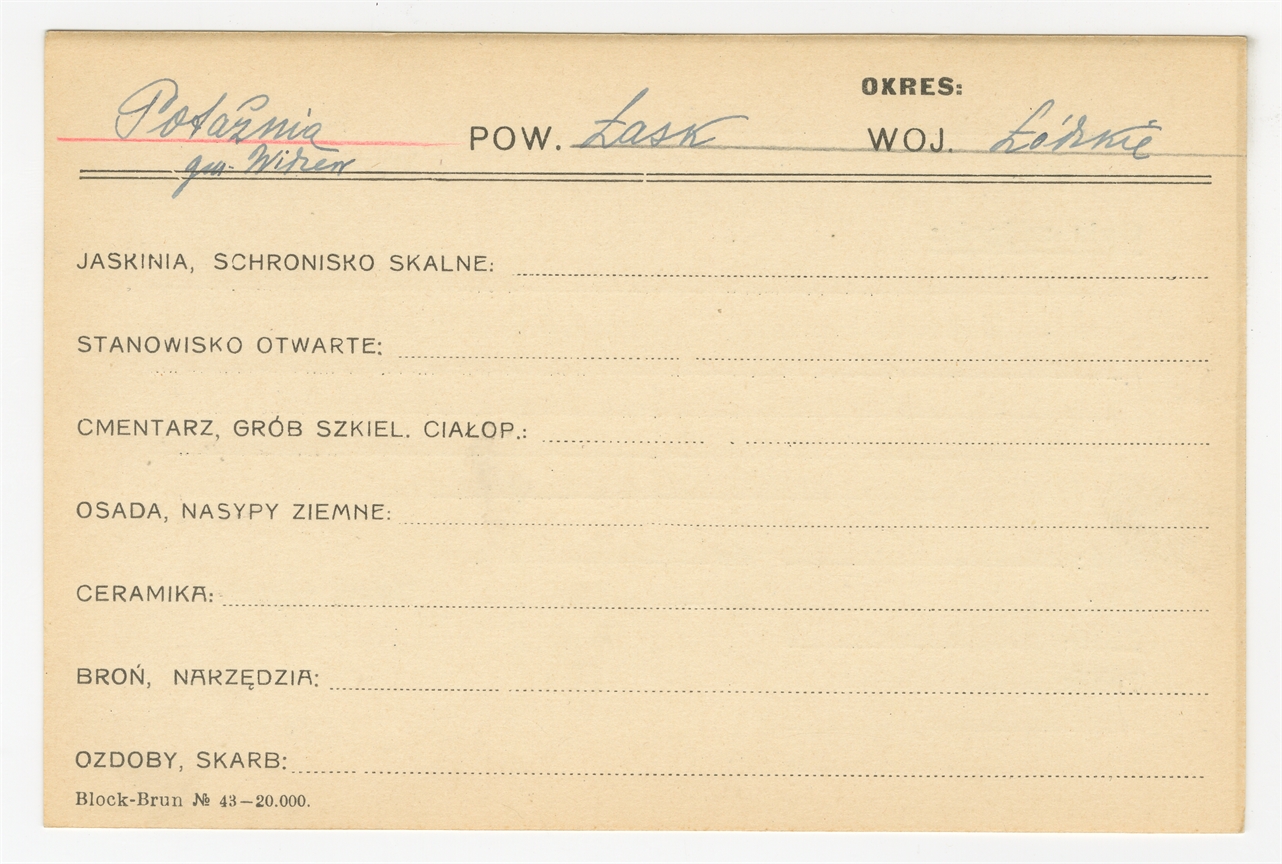 OKRES:
Potaźnia POW. Łask WOJ. Łódzkie
gm. Widzew
JASKINIA, SCHRONISKO SKALNE:
STANOWISKO OTWARTE:
CMENTARZ, GRÓB SZKIEL. CIAŁOP.:
OSADA, NASYPY ZIEMNE:
CERAMIKA:
BROŃ, NARZĘDZIA:
OZDOBY, SKARB:
Block-Brun № 43—20.000.